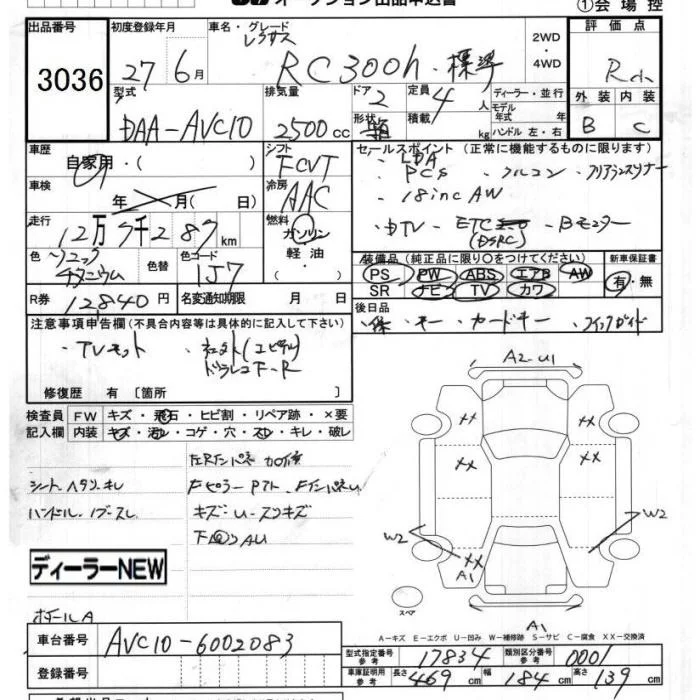 オークション出品申込書
①会場控
出品番号 3036
初度登録年月 27年6月
車名・グレード レクサス RC300h・標準
2WD・4WD
評価点 R
外装 B 内装 C
型式 DAA-AVC10
排気量 2500cc
ドア 2
定員 4人
形状 箱
積載 kg
ディーラー・並行
モデル年式 年式
ハンドル 左・右
車歴 自家用・( )
シフト FCVT
セールスポイント (正常に機能するものに限ります)
・LDA ・PCS ・クルコン ・クリアランスソナー
・18inc AW
・DTV ・ETC (DSRC) ・Bモニター
車検 年 月( 日)
冷房 AAC
走行 12万7千287km
燃料 ガソリン 軽油・( )
色 ソニック チタニウム
色替
色コード 1J7
装備品 (純正品に限り○をつけてください)
PS PW ABS エアB AW
SR ナビ TV カワ
新車保証書 有・無
R券 12840円
名変通知期限 月 日
後日品 ・保 ・キー ・カードキー ・クイックガイド
注意事項申告欄 (不具合内容等は具体的に記入して下さい)
・TVキット
ドラレコF-R
修復歴 有 [箇所 ]
検査員記入欄
FW キズ・飛石・ヒビ割・リペア跡・×要
内装 キズ・汚レ・コゲ・穴・スレ・キレ・破レ
シート ヘタリ キレ
ハンドル・ノブスレ
キズ・U・スリキズ
ディーラーNEW
ホイールA
A2-U1
XX XX
XX XX
W2 W2
XX
A1
A1
スペア
A-キズ E-エクボ U-凹み W-補修跡 S-サビ C-腐食 XX-交換済
車台番号 AVC10-6002083
型式指定番号 参考 17834
類別区分番号 参考 0001
登録番号
車庫証明用 参考 長さ 469cm 幅 184cm 高さ 139cm